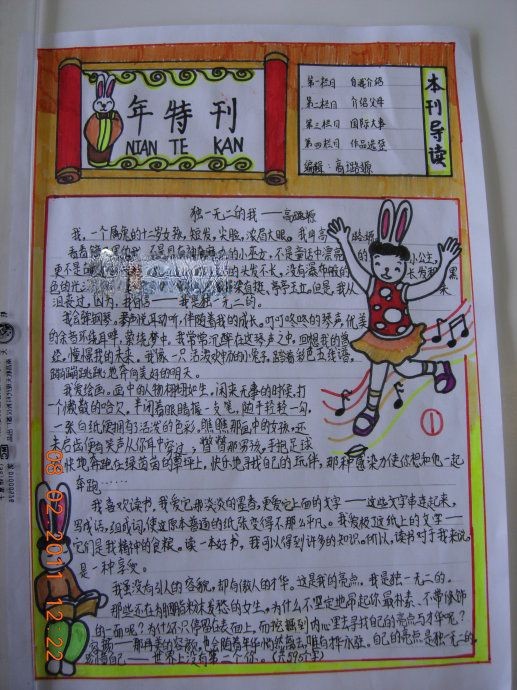 年特刊
NIAN TE KAN
第一栏目 自我介绍
第二栏目 介绍父母
第三栏目 国际大事
第四栏目 作品选登
编辑:高璐源
本刊导读
独一无二的我——高璐源
我,一个属兔的十二岁女孩,短发,尖脸,没有大眼。我叫高
璐源
不是童话中漂亮的
小公主,
更不是
的头发不长,没有瀑布般的
长发和
黑
色的
亭亭玉立。但是,我从
来
沮丧过,因为,我自信——我是独一无二的。
我会弹钢琴。琴声悦耳动听,伴随着我的成长。叮叮咚咚的琴声,优美
的余音环绕耳畔,萦绕梦中。我常常沉醉在这琴声之中,回想我的
憧憬我的未来。我像一只活泼欢快的小兔子,踏着彩色五线谱,
蹦蹦跳跳地奔向美好的明天。
我爱绘画。画中的人物栩栩如生,闲来无事的时候,打
个懒散的哈欠,半闭着眼睛握一支笔,随手轻轻一勾,
一张白纸便拥有了活泼的色彩,瞧瞧那画中的女孩,还
未启齿便有笑声从你耳中穿过;瞥瞥那男孩,手抱足球
快地奔跑在绿茵茵的草坪上,快乐地寻找自己的玩伴,那种感染力使你想和他一起
奔跑……
我喜欢读书,我爱它那淡淡的墨香,更爱它上面的文字——这些文字串连起来,
写成话,组成词,使这原本普通的纸张变得不那么平凡。我爱极了这纸上的文字——
它们是我精神的食粮。读一本好书,我可以得到许多的知识。所以,读书对于我来说
是一种享受。
我虽没有引人的容貌,却有傲人的才华。这是我的亮点。我是独一无二的。
那些还在为胭脂粉沫发愁的女生,为什么不坚定地吊起你最朴素、不带修饰
的一面呢?为什么不停留在表面上,而挖掘到内心里去寻找自己的亮点与才华呢?
容颜——那再美的容貌,也会随着年华悄然离去,唯有才华永驻。自己的亮点是独一无二的,
自己——世界上没有第二个你。(共595字)
①
08 02 2011 12 22